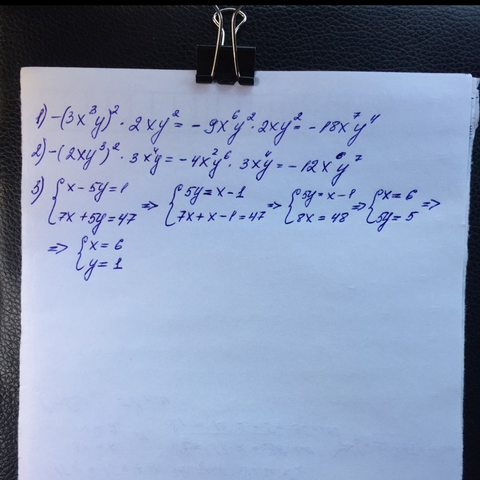 1) -(3x³y)² · 2xy² = - 9x⁶y² · 2xy² = - 18x⁷y⁴
2) -(2xy³)² · 3x⁴y = - 4x²y⁶ · 3x⁴y = - 12x⁶y⁷
3) { x - 5y = 1 ; 7x + 5y = 47 => { 5y = x - 1 ; 7x + x - 1 = 47 => { 5y = x - 1 ; 8x = 48 => { x = 6 ; 5y = 5 =>
=> { x = 6 ; y = 1